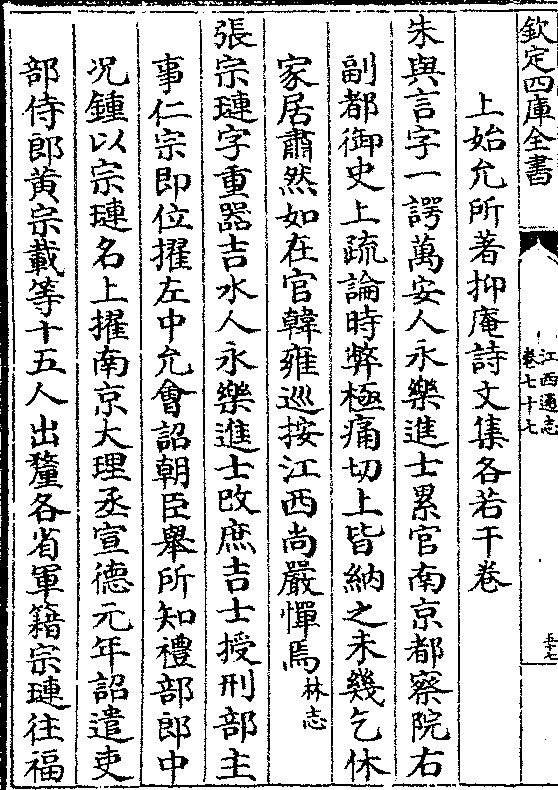 欽定四庫全書
江西通志
卷七十七
上始允所著抑庵詩文集各若干卷
朱與言字一諤萬安人永樂進士累官南京都察院右
副都御史上疏論時弊極痛切上皆納之未幾乞休
家居肅然如在官韓雍巡按江西尚嚴憚焉林志
張宗璉字重器吉水人永樂進士改庶吉士授刑部主
事仁宗即位擢左中允會詔朝臣舉所知禮部郎中
况鍾以宗璉名上擢南京大理丞宣德元年詔遣吏
部侍郎黄宗載等十五人出釐各省軍籍宗璉往福